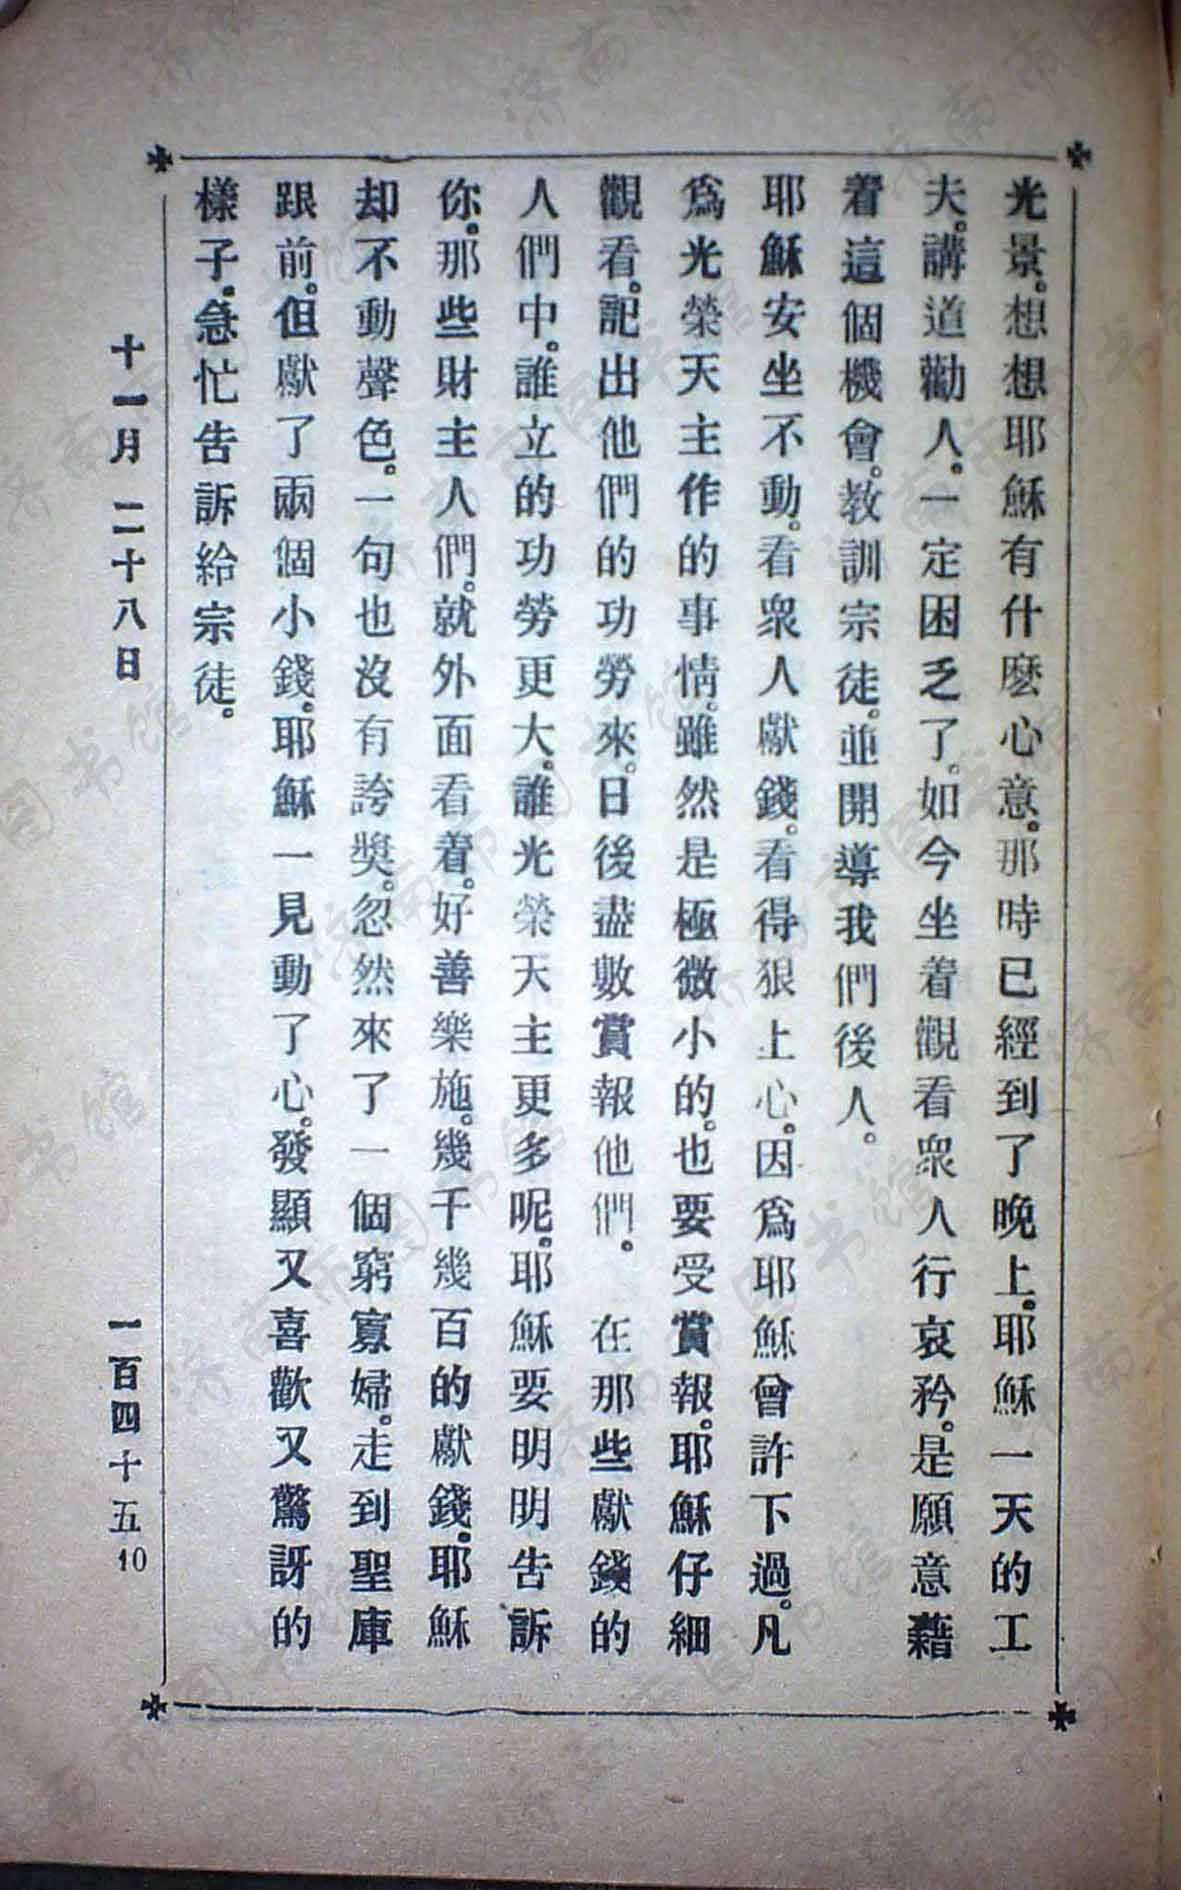 光景。想想耶穌有什麽心意。那時已經到了晚上。耶穌一天的工
夫。講道勸人。一定困乏了。如今坐着觀看衆人行哀矜。是願意藉
着這個機會。教訓宗徒。並開導我們後人。
耶穌安坐不動。看衆人獻錢。看得狠上心。因爲耶穌曾許下過。凡
爲光榮天主作的事情。雖然是極微小的。也要受賞報。耶穌仔細
觀看。記出他們的功勞來。日後盡數賞報他們。 在那些獻錢的
人們中。誰立的功勞更大。誰光榮天主更多呢。耶穌要明明告訴
你。那些財主人們。就外面看着。好善樂施。幾千幾百的獻錢。耶穌
却不動聲色。一句也沒有誇獎。忽然來了一個窮寡婦。走到聖庫
跟前。但獻了兩個小錢。耶穌一見動了心。發顯又喜歡又驚訝的
樣子。急忙告訴給宗徒。
十一月 二十八日 一百四十五 10
济南市图书馆